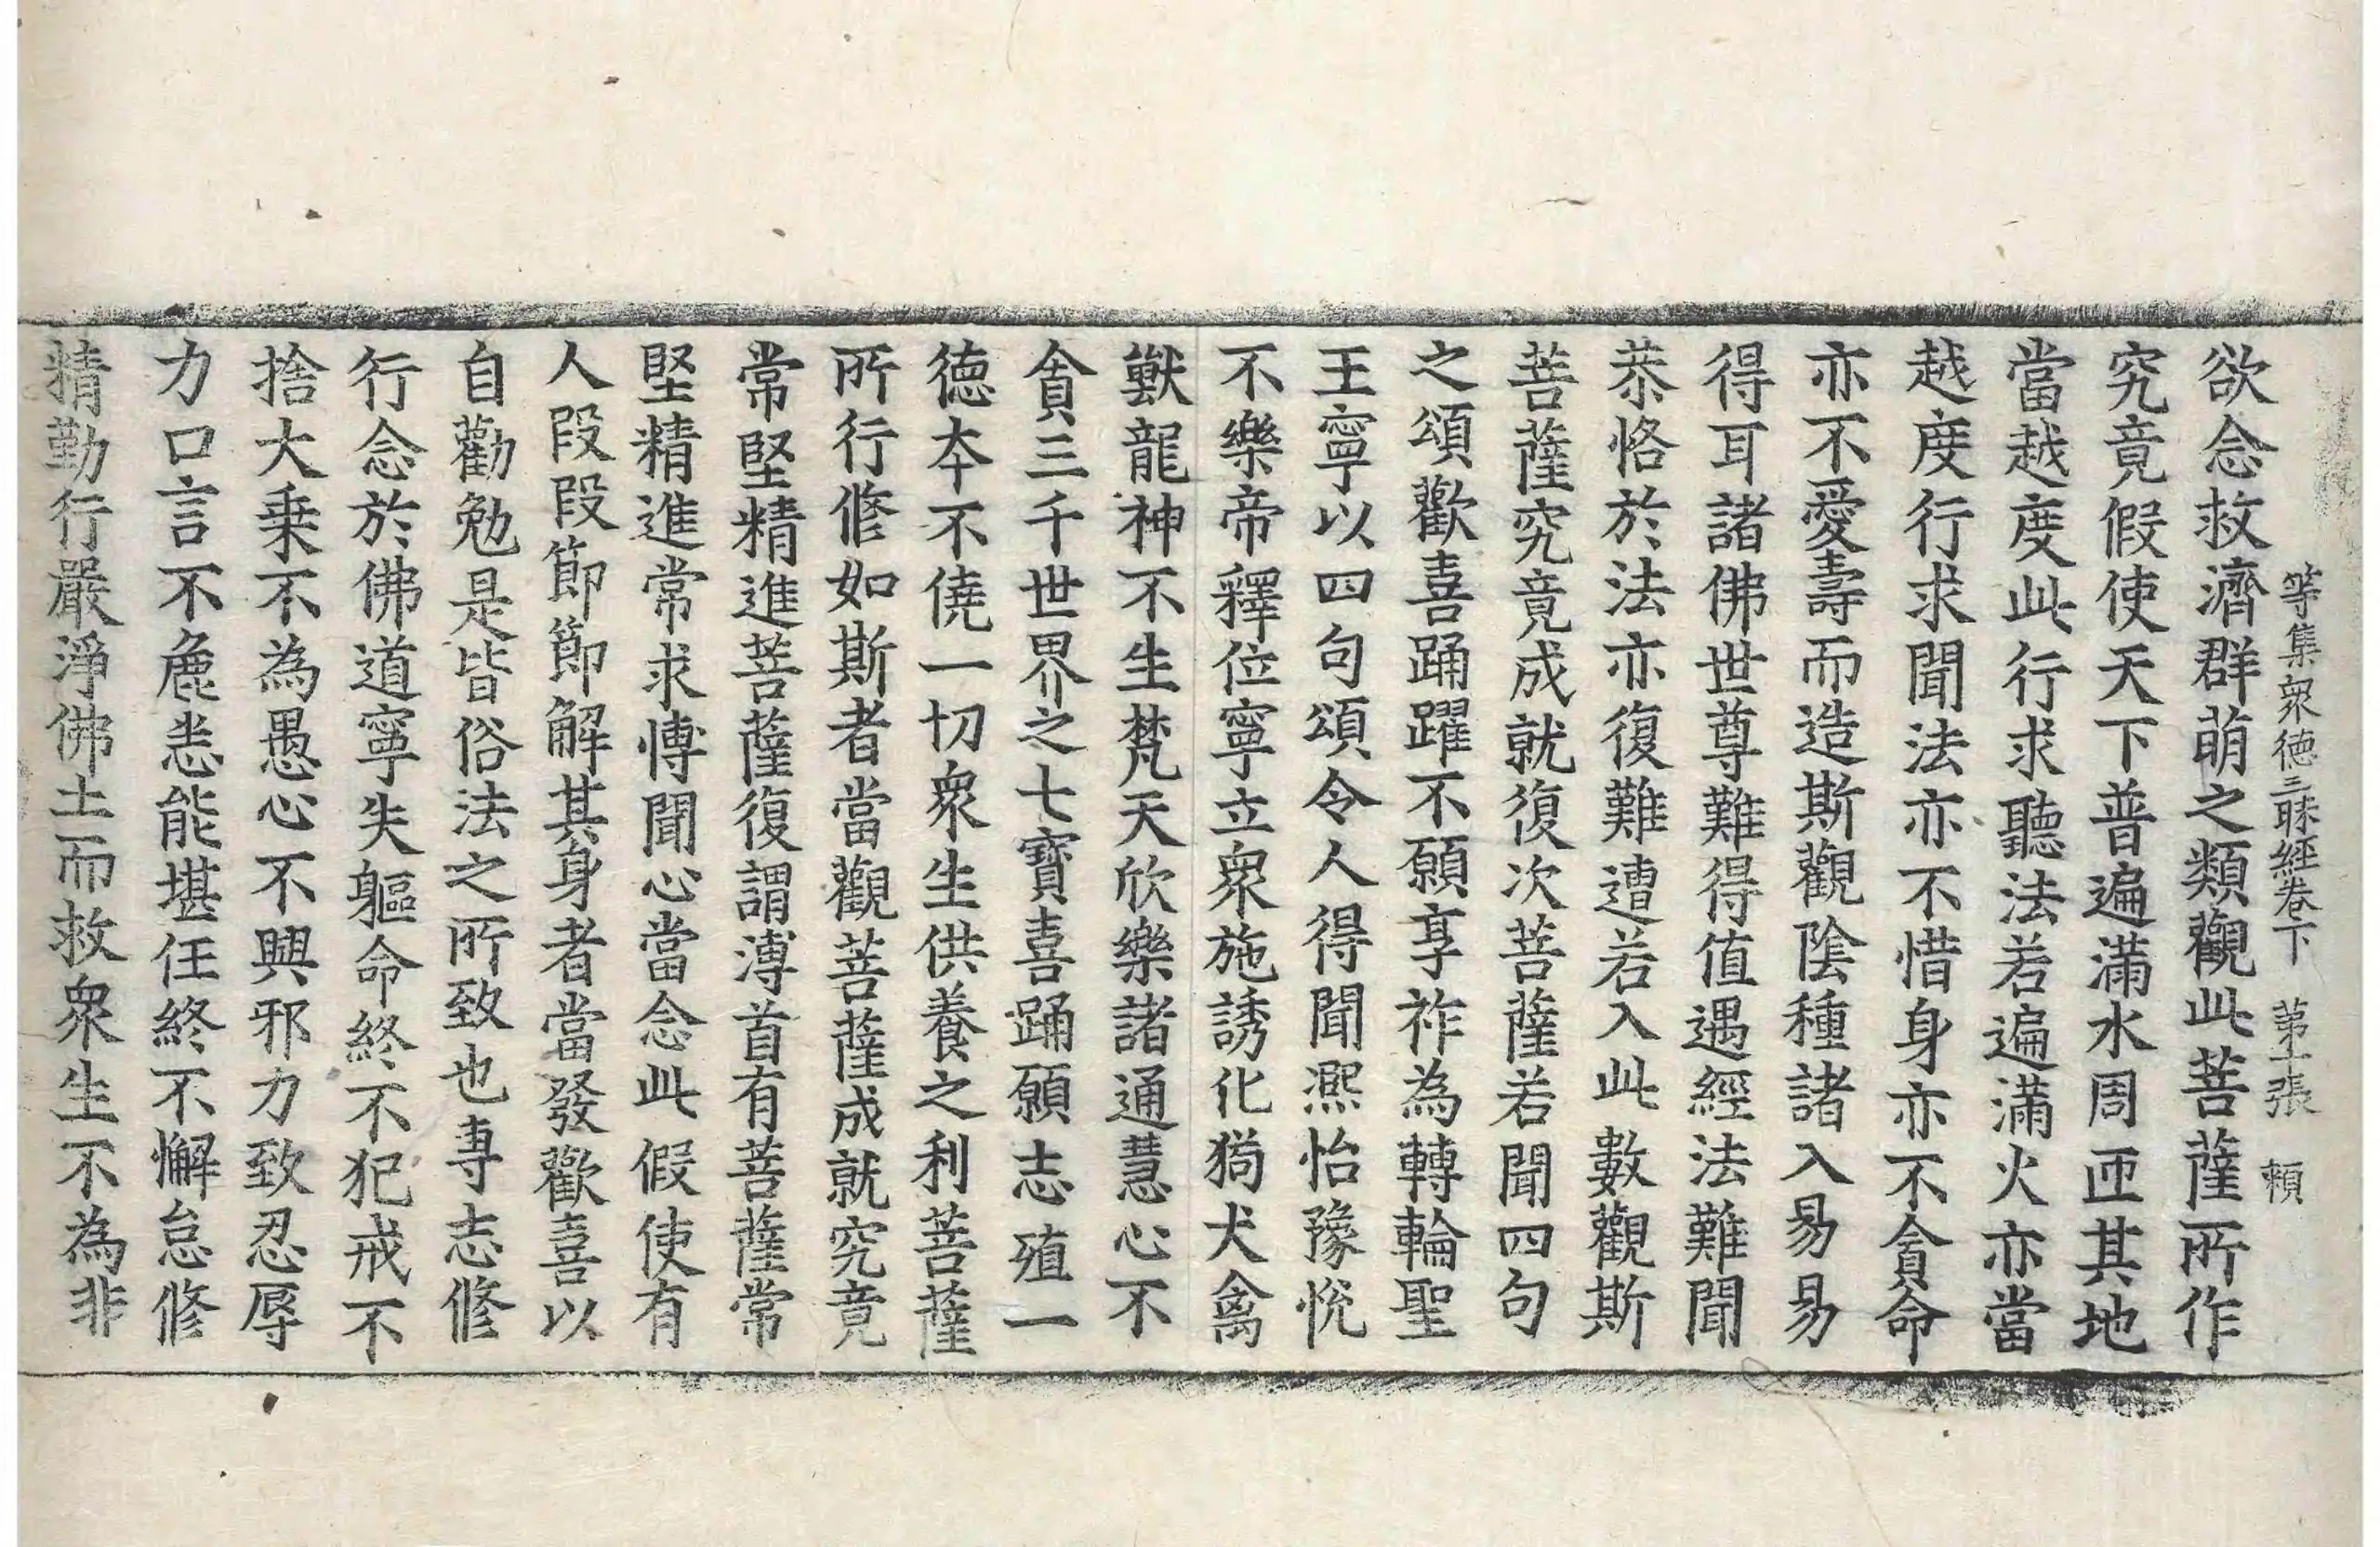 等集衆德三昧經卷下 第十張 賴
欲念救濟群萌之類觀此菩薩所作
究竟假使天下普遍滿水周匝其地
當越度此行求聽法若遍滿火亦當
越度行求聞法亦不惜身亦不貪命
亦不愛壽而造斯觀陰種諸入易易
得耳諸佛世尊難得值遇經法難聞
恭恪於法亦復難遭若入此數觀斯
菩薩究竟成就復次菩薩若聞四句
之頌歡喜踊躍不願享祚為轉輪聖
王寧以四句頌令人得聞凞怡豫悅
不樂帝釋位寧立衆施誘化猗犬禽
獸龍神不生梵天欣樂諸通慧心不
貪三千世界之七寶喜踊願志殖一
德本不僥一切衆生供養之利菩薩
所行修如斯者當觀菩薩成就究竟
常堅精進菩薩復謂溥首有菩薩常
堅精進常求博聞心當念此假使有
人段段節節解其身者當發歡喜以
自勸勉是皆俗法之所致也專志修
行念於佛道寧失軀命終不犯戒不
捨大乗不為愚心不興邪力致忍辱
力口言不麁恙能堪任終不懈怠修
精勤行嚴淨佛土而救衆生不為非